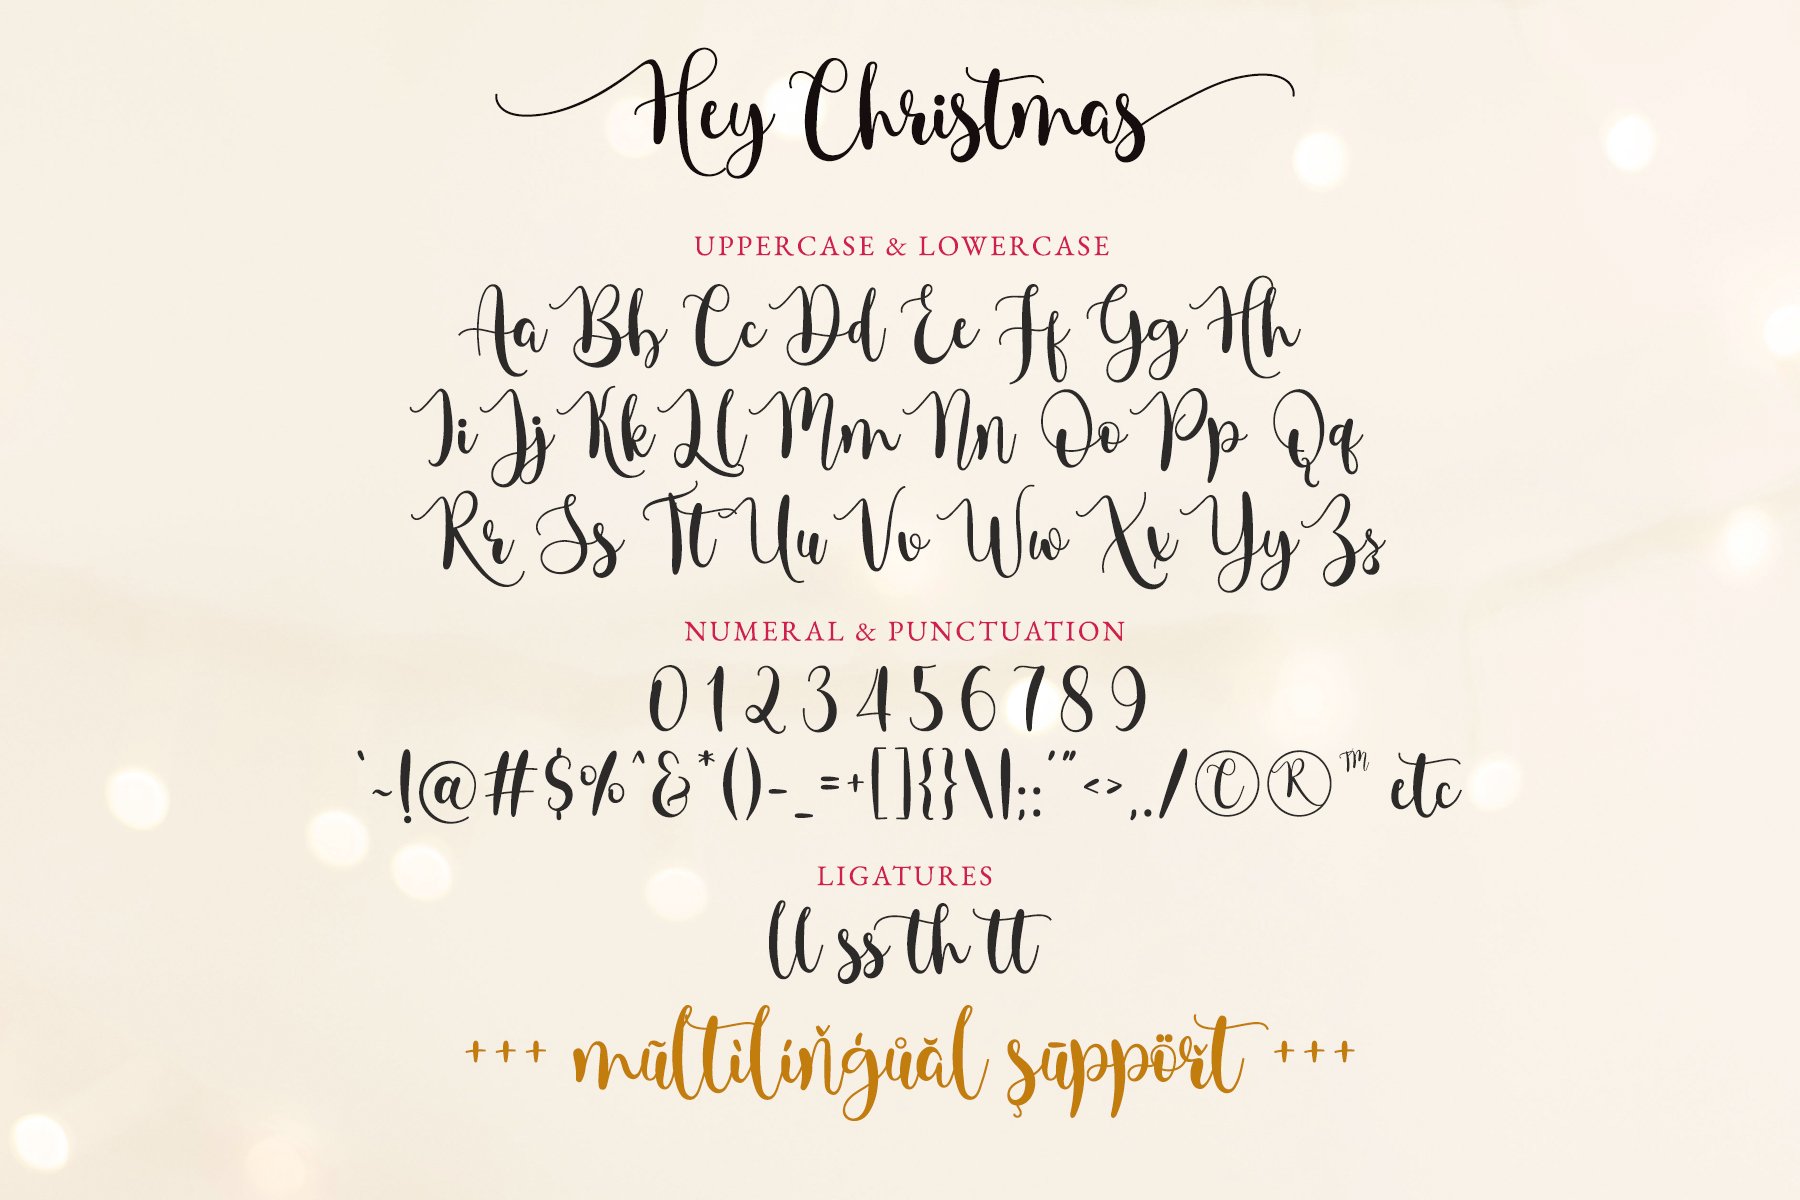 Hey Christmas
UPPERCASE & LOWERCASE
Aa Bb Cc Dd Ee Ff Gg Hh
Ii Jj Kk Ll Mm Nn Oo Pp Qq
Rr Ss Tt Uu Vv Ww Xx Yy Zs
NUMERAL & PUNCTUATION
0 1 2 3 4 5 6 7 8 9
`~!@#$%^&*()-_=+[]{}\|;:'"<>,./©®™ etc
LIGATURES
ll ss th tt
+++ mũltìlíňģůăl şūppöřt +++